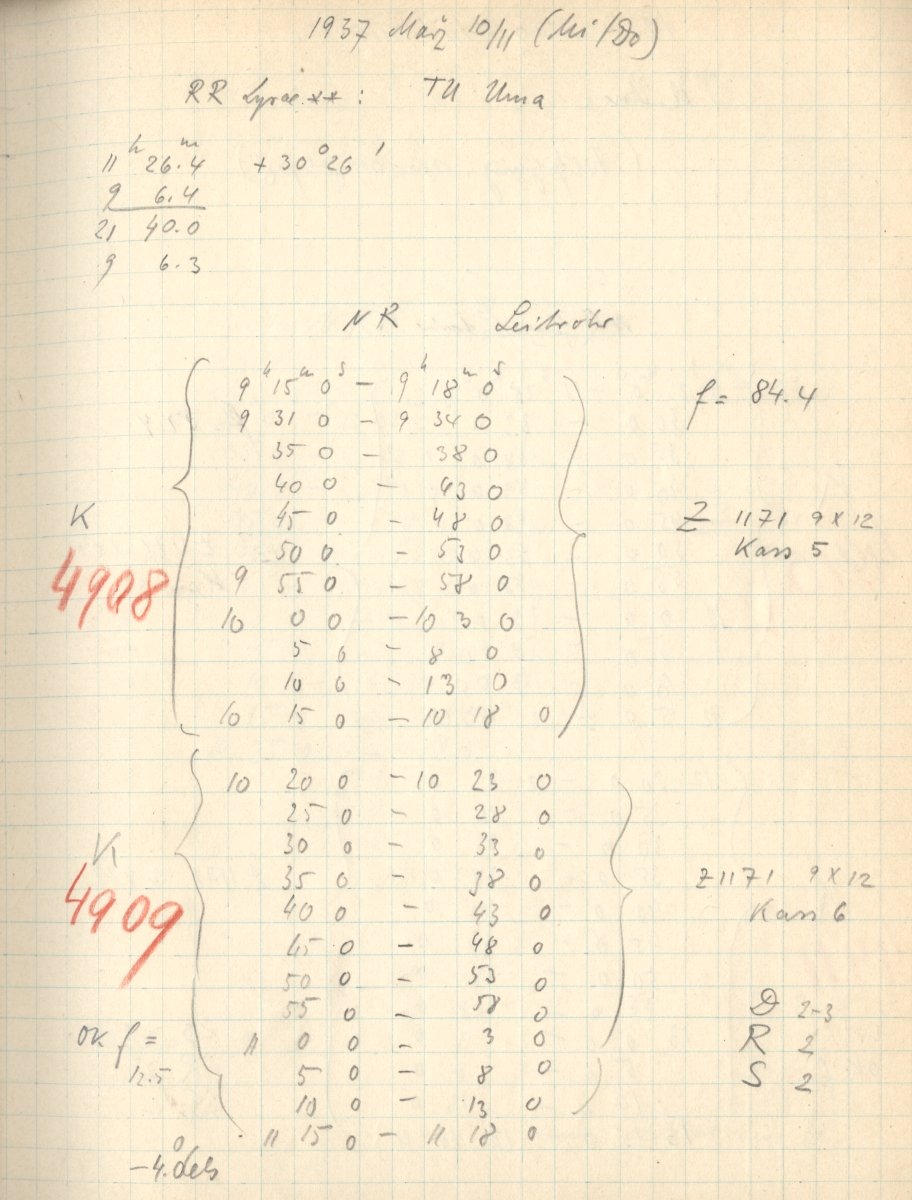 1937 März 10/11 (Mi/Do)
RR Lyrae ** : TU Uma
11ʰ 26.4ᵐ + 30° 26'
9 6.4
21 40.0
9 6.3
NR Leitrohr
9ʰ 15ᵐ 0ˢ - 9ʰ 18ᵐ 0ˢ
f = 84.4
9 31 0 - 9 34 0
35 0 - 38 0
40 0 - 43 0
K 45 0 - 48 0 Z 1171 9 x 12
50 0 - 53 0 Kass 5
4908 9 55 0 - 58 0
10 0 0 - 10 3 0
5 0 - 8 0
10 0 - 13 0
10 15 0 - 10 18 0
10 20 0 - 10 23 0
25 0 - 28 0
K 30 0 - 33 0
35 0 - 38 0 Z 1171 9 x 12
4909 40 0 - 43 0 Kass 6
45 0 - 48 0
50 0 - 53 0
55 0 - 58 0 D 2-3
OK f = 11 0 0 - 3 0 R 2
12.5 5 0 - 8 0 S 2
10 0 - 13 0
11 15 0 - 11 18 0
-4.°